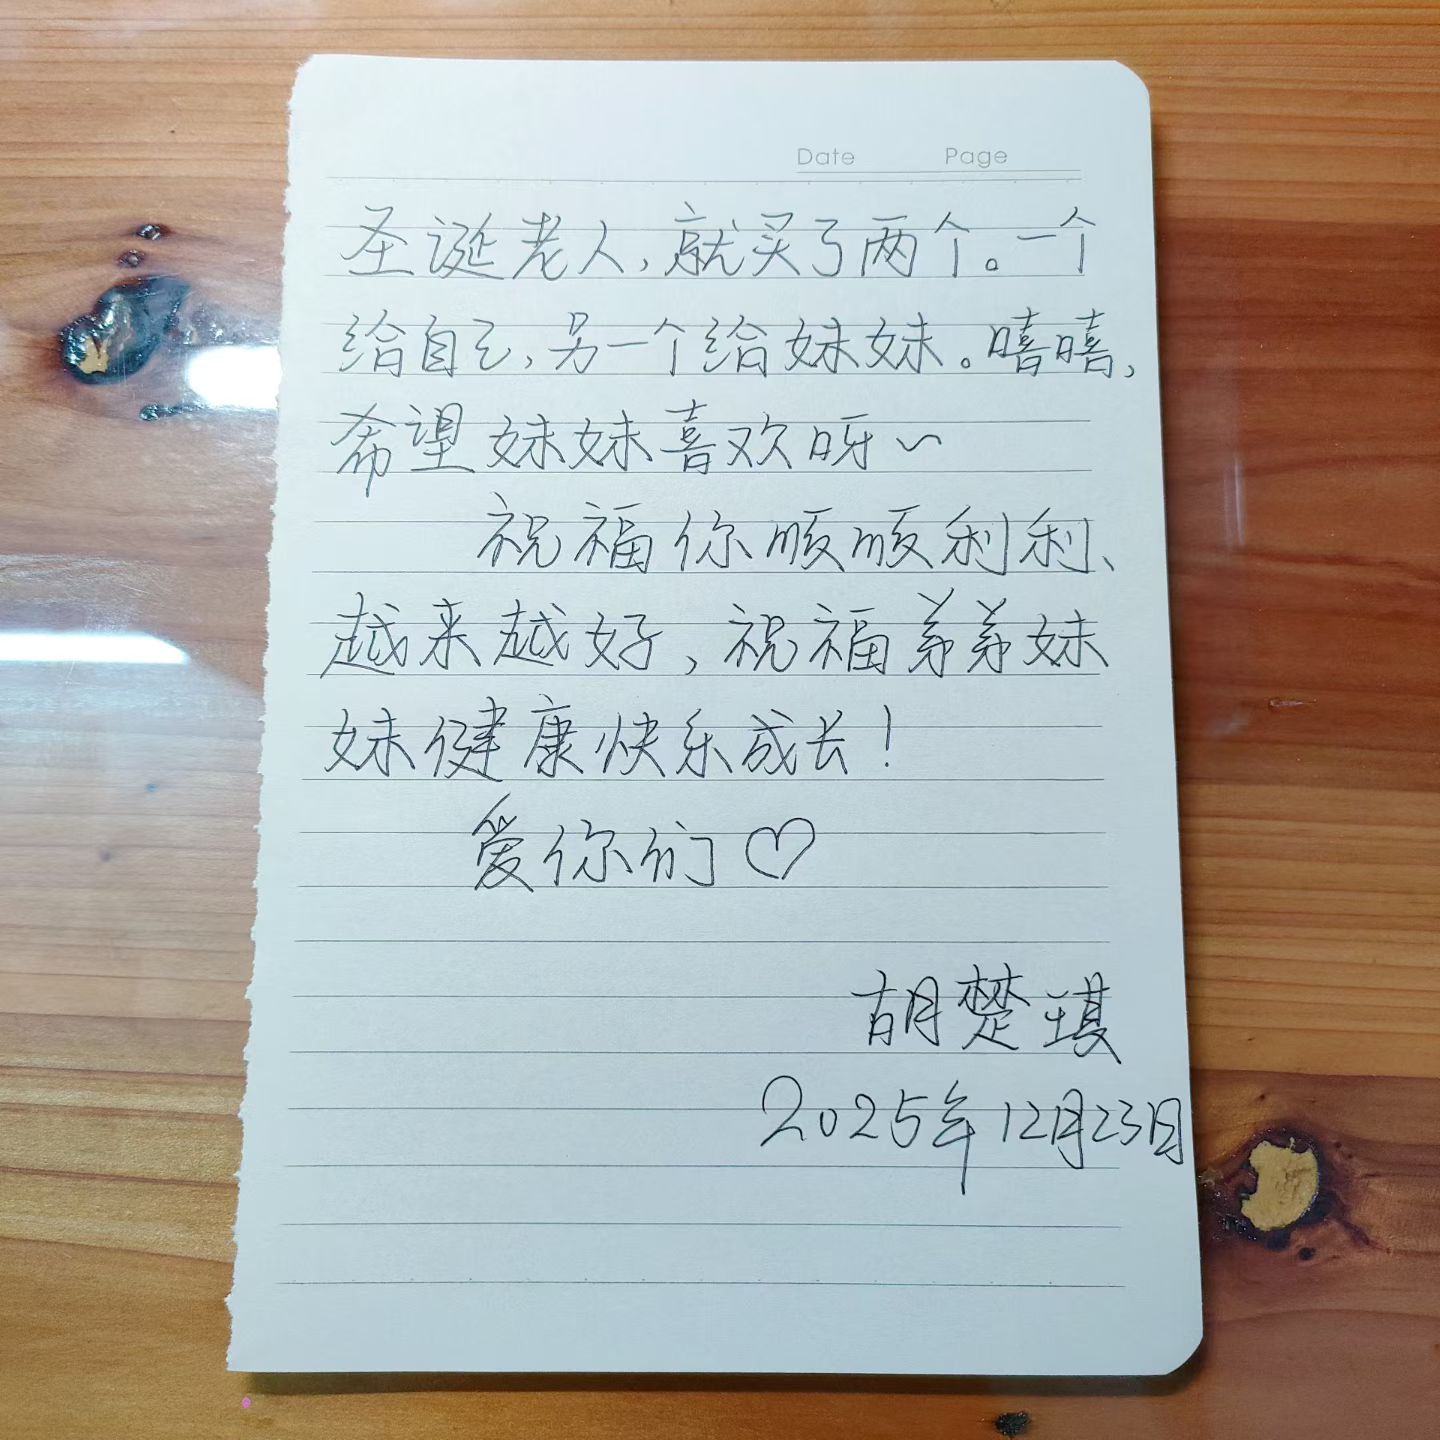 Date Page
圣诞老人，就买了两个。一个
给自己，另一个给妹妹。嘻嘻，
希望妹妹喜欢呀~
祝福你顺顺利利、
越来越好，祝福弟弟妹
妹健康快乐成长！
爱你们♡
胡楚琪
2025年12月23日